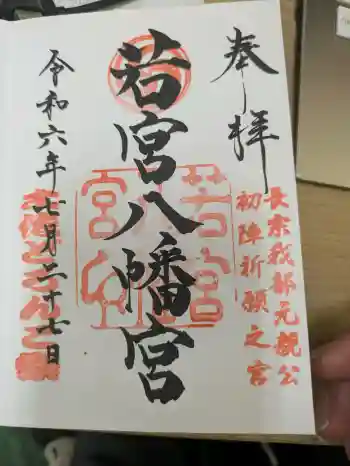 奉拝
長宗我部元親公
初陣祈願之宮
若宮八幡宮
令和六年七月二十七日